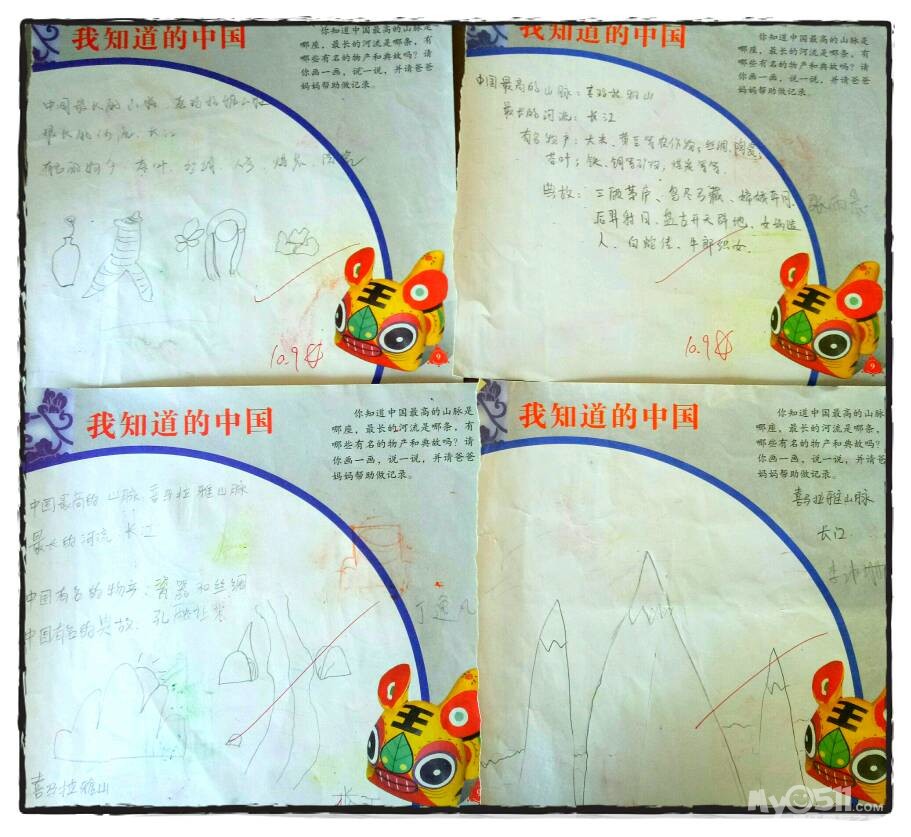 我知道的中国
你知道中国最高的山脉是
哪座，最长的河流是哪条，有
哪些有名的物产和典故吗？请
你画一画，说一说，并请爸爸
妈妈帮助做记录。
最长的河流：长江
王
10.9
9
我知道的中国
你知道中国最高的山脉是
哪座，最长的河流是哪条，有
哪些有名的物产和典故吗？请
你画一画，说一说，并请爸爸
妈妈帮助做记录。
中国最高的山脉：喜玛拉雅山
最长的河流：长江
有名物产：大米、黄豆等农作物；丝绸、陶瓷、
茶叶；铁、铜等矿物，煤炭等等
典故：三顾茅庐、鸟尽弓藏、嫦娥奔月、
后羿射日、盘古开天辟地、女娲造
人、白蛇传、牛郎织女.
王
10.9
9
我知道的中国
你知道中国最高的山脉是
哪座，最长的河流是哪条，有
哪些有名的物产和典故吗？请
你画一画，说一说，并请爸爸
妈妈帮助做记录。
中国最高的山脉.喜马拉雅山脉
最长的河流.长江
中国有名的物产：瓷器和丝绸
中国有名的典故.孔融让梨
喜马拉雅山
长江
王
我知道的中国
你知道中国最高的山脉是
哪座，最长的河流是哪条，有
哪些有名的物产和典故吗？请
你画一画，说一说，并请爸爸
妈妈帮助做记录。
喜马拉雅山脉
长江
王
My0511.com